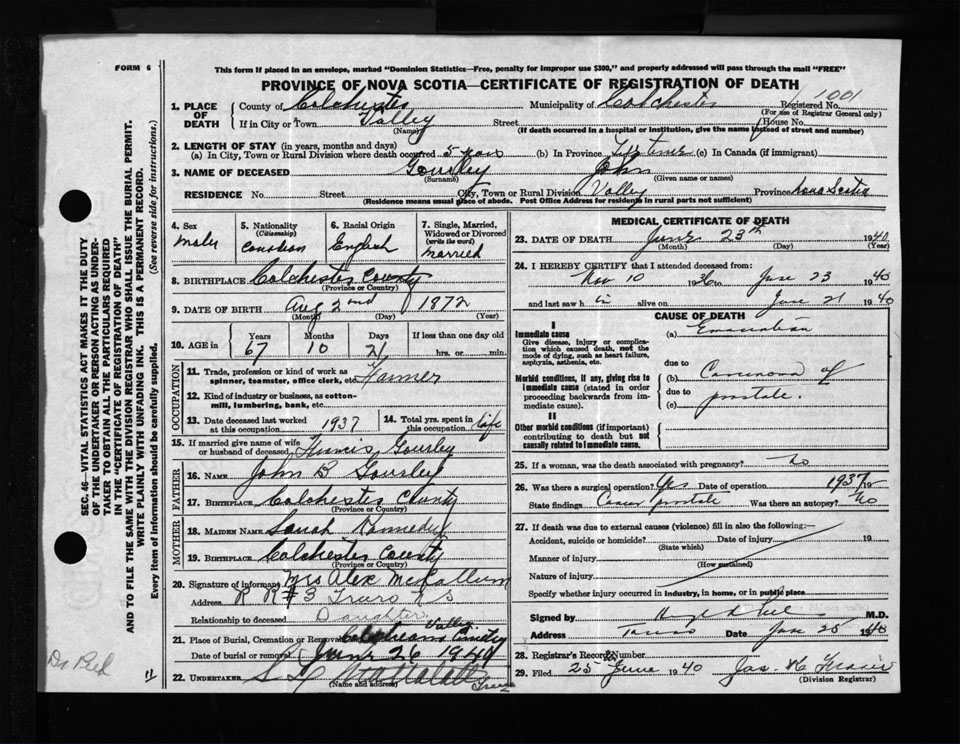 FORM 6
This form if placed in an envelope, marked "Dominion Statistics—Free, penalty for improper use $300," and properly addressed will pass through the mail "FREE"
PROVINCE OF NOVA SCOTIA—CERTIFICATE OF REGISTRATION OF DEATH
1. PLACE OF DEATH
County of Colchester Municipality of Colchester Registered No. 1001
(For use of Registrar General only)
If in City or Town Valley Street House No.
(Name) (If death occurred in a hospital or institution, give the name instead of street and number)
2. LENGTH OF STAY (in years, months and days)
(a) In City, Town or Rural Division where death occurred 5 years (b) In Province Life time (c) In Canada (if immigrant)
3. NAME OF DECEASED Gourley John
(Surname) (Given name or names)
RESIDENCE No. Street City, Town or Rural Division Valley Province Nova Scotia
(Residence means usual place of abode. Post Office Address for residents in rural parts not sufficient)
4. Sex 5. Nationality (Citizenship) 6. Racial Origin 7. Single, Married, Widowed or Divorced (write the word)
Male Canadian English Married
8. BIRTHPLACE Colchester County
(Province or Country)
9. DATE OF BIRTH Aug 2nd 1872
(Month) (Day) (Year)
10. AGE in Years Months Days If less than one day old
67 10 21 hrs. or min.
OCCUPATION
11. Trade, profession or kind of work as spinner, teamster, office clerk, etc. Farmer
12. Kind of industry or business, as cotton-mill, lumbering, bank, etc.
13. Date deceased last worked at this occupation 1937 14. Total yrs. spent in this occupation Life
15. If married give name of wife or husband of deceased Francis Gourley
FATHER
16. NAME John B Gourley
17. BIRTHPLACE Colchester County
(Province or Country)
MOTHER
18. MAIDEN NAME Sarah Kennedy
19. BIRTHPLACE Colchester County
(Province or Country)
20. Signature of informant Mrs Alex McCallum
Address R R #3 Truro N S
Relationship to deceased Daughter
21. Place of Burial, Cremation or Removal Valley Cemetery
Date of burial or removal June 26 1940
22. UNDERTAKER Truro
(Name and address)
MEDICAL CERTIFICATE OF DEATH
23. DATE OF DEATH June 23rd 1940
(Month) (Day) (Year)
24. I HEREBY CERTIFY that I attended deceased from:
Nov 10 1936 to June 23 1940
and last saw h im alive on June 21 1940
CAUSE OF DEATH
I
Immediate cause
Give disease, injury or complication which caused death, not the mode of dying, such as heart failure, asphyxia, asthenia, etc.
(a) Emaciation
due to
Morbid conditions, if any, giving rise to immediate cause (stated in order proceeding backwards from immediate cause).
(b) Carcinoma of
due to
(c) prostate.
II
Other morbid conditions (if important) contributing to death but not causally related to immediate cause.
25. If a woman, was the death associated with pregnancy? No
26. Was there a surgical operation? Yes Date of operation 1937
State findings prostate Was there an autopsy? No
27. If death was due to external causes (violence) fill in also the following:—
Accident, suicide or homicide? Date of injury 19
(State which)
Manner of injury
(How sustained)
Nature of injury
Specify whether injury occurred in Industry, in home, or in public place
Signed by M.D.
Address Truro Date June 25 1940
28. Registrar's Record Number
29. Filed 25 June 1940 Jas. Fraser
(Division Registrar)
SEC. 46—VITAL STATISTICS ACT MAKES IT THE DUTY
OF THE UNDERTAKER OR PERSON ACTING AS UNDER-
TAKER TO OBTAIN ALL THE PARTICULARS REQUIRED
IN THE "CERTIFICATE OF REGISTRATION OF DEATH"
AND TO FILE THE SAME WITH THE DIVISION REGISTRAR WHO SHALL ISSUE THE BURIAL PERMIT.
WRITE PLAINLY WITH UNFADING INK. THIS IS A PERMANENT RECORD.
Every item of information should be carefully supplied. (See reverse side for instructions.)
11